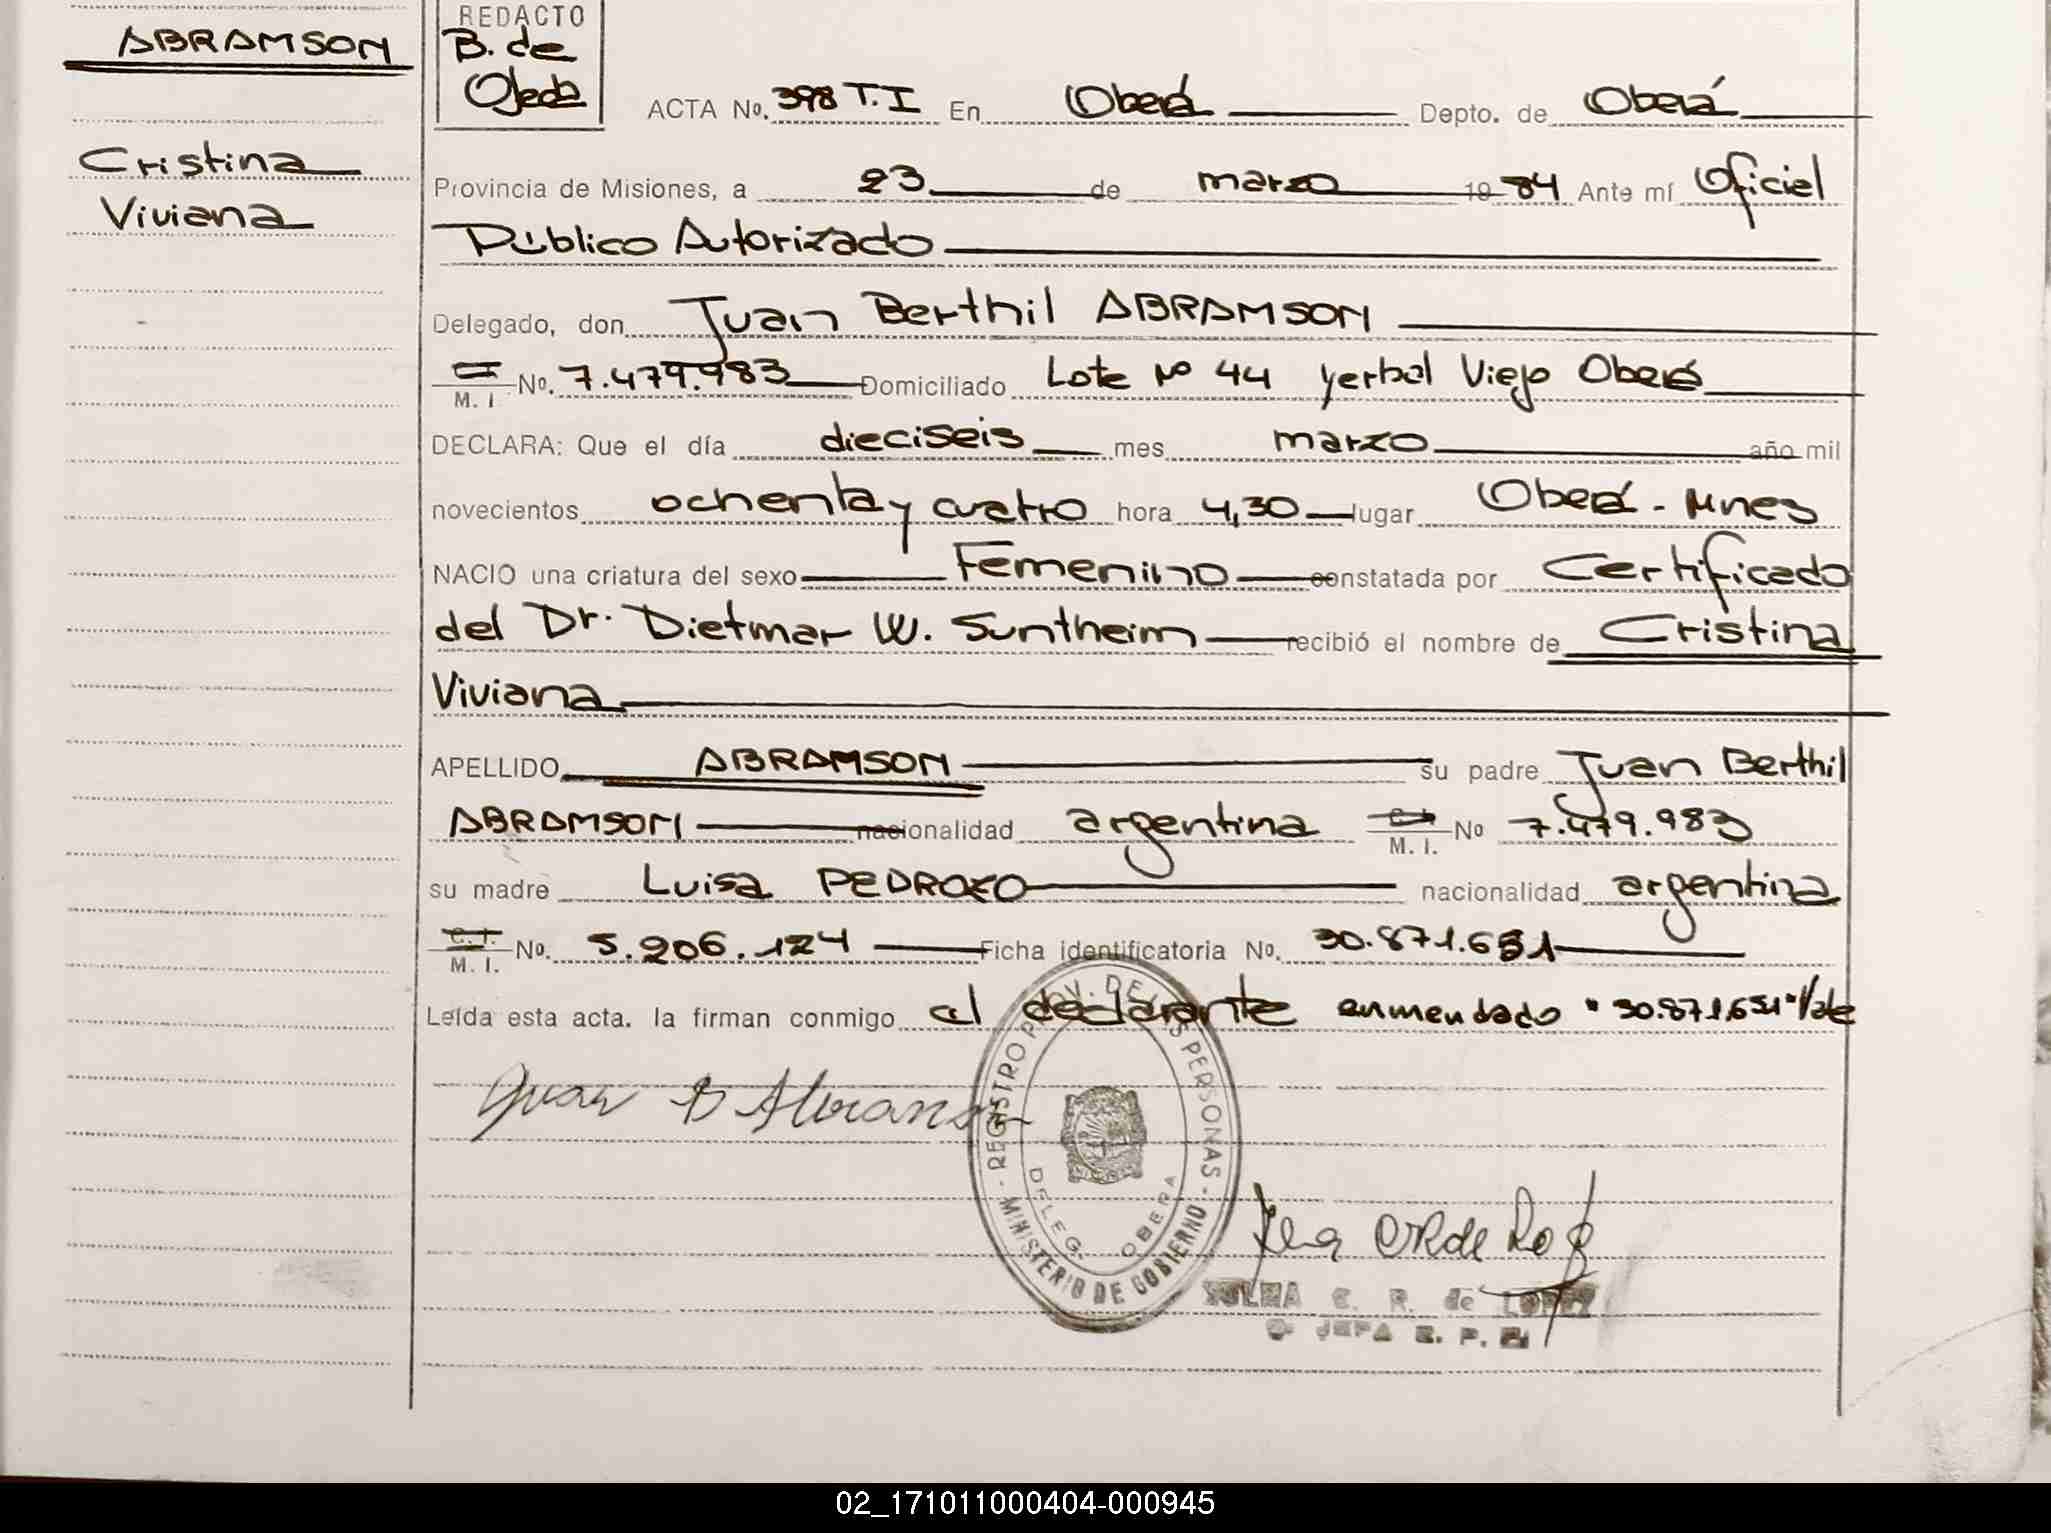 ABRAMSON
Cristina
Viviana
REDACTO
B. de
Ojeda
ACTA No. 398 T.I En Oberá Depto. de Oberá
Provincia de Misiones, a 23 de marzo 1984 Ante mí Oficial
Público Autorizado
Delegado, don Juan Berthil ABRAMSON
M. I. No. 7.479.983 Domiciliado Lote Nº 44 yerbal Viejo Oberá
DECLARA: Que el día dieciseis mes marzo año mil
novecientos ochenta y cuatro hora 4,30 lugar Oberá - Mnes
NACIO una criatura del sexo Femenino constatada por Certificado
del Dr. Dietmar W. Suntheim recibió el nombre de Cristina
Viviana
APELLIDO ABRAMSON su padre Juan Berthil
ABRAMSON nacionalidad argentina C. I. M. I. No 7.479.983
su madre Luisa PEDROZO nacionalidad argentina
C. I. M. I. No. 5.206.124 Ficha identificatoria No. 30.871.651
Leída esta acta. la firman conmigo el declarante enmendado "30.871.651" Vale
Juan B Abramson
REGISTRO PROV. DE LAS PERSONAS
MINISTERIO DE GOBIERNO
DELEG. OBERA
C. R. de LOPEZ
JEFA
02_171011000404-000945